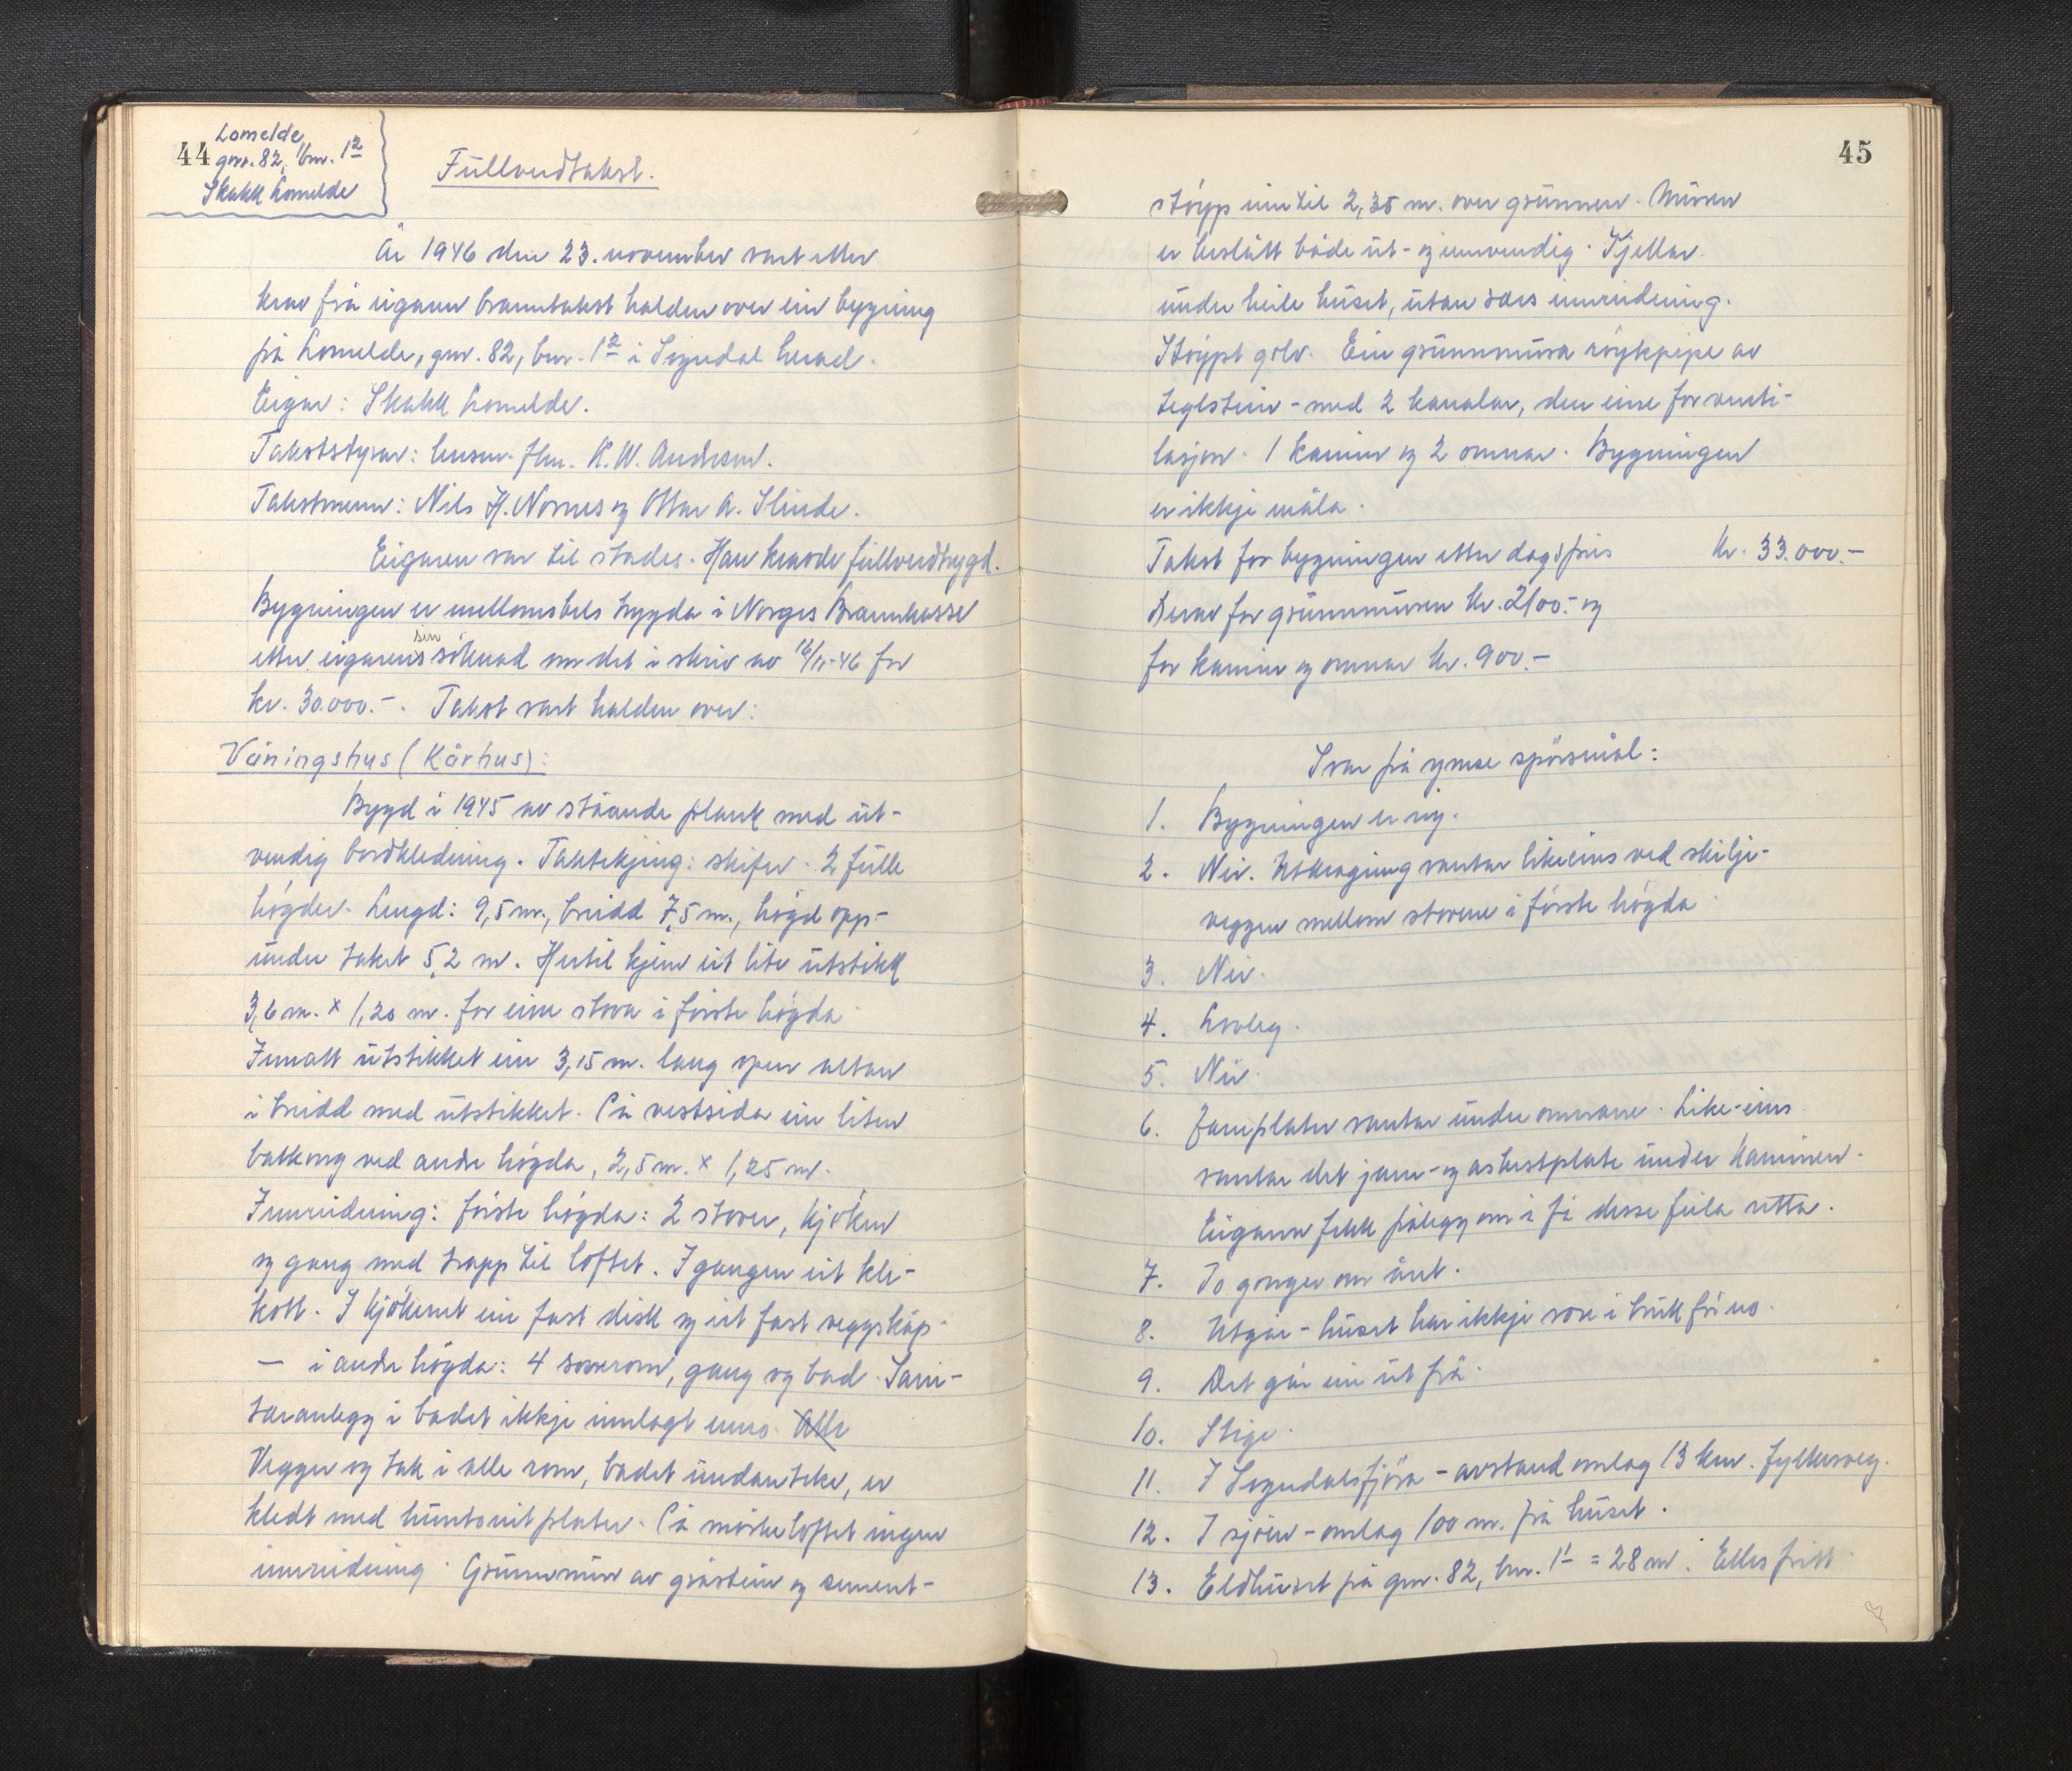 44
Lomelde
gnr. 82, bnr. 12
Skakk Lomelde
Fullverdtakst.
År 1946 den 23. november vart etter
krav frå eigaren branntakst halden over ein bygning
på Lomelde, gnr. 82, bnr. 12 i Sogndal herad.
Eigar: Skakk Lomelde.
Takststyrar: lensm. flm. K. W. Andresen.
Takstmenn: Nils H. Nornes og Ottar A. Slinde.
Eigaren var til stades. Han kravde fullverdtrygd.
Bygningen er mellombels trygda i Norges Brannkasse
etter eigarens sin söknad om det i skriv av 16/11-46 for
kr. 30.000.-. Takst vart halden over:
Våningshus (Kårhus):
Bygd i 1945 av ståande plank med ut-
vendig bordkledning. Taktekjing: skifer. 2 fulle
högder. Lengd: 9,5 m., breidd 7,5 m., högd opp-
under taket 5,2 m. Hertil kjem eit lite utstikk
3,6 m. x 1,20 m. for eine stova i förste högda.
Innatt utstikket ein 3,15 m. lang open altan
i breidd med utstikket. På vestsida ein liten
balkong ved andre högda, 2,5 m. x 1,25 m.
Innreidning: förste högda: 2 stover, kjöken
og gang med trapp til loftet. I gangen eit kle-
kott. I kjökenet ein fast disk og eit fast veggskåp.
— i andre högda: 4 soverom, gang og bad. Sani-
tæranlegg i badet ikkje innlagt enno. Alle
Vegger og tak i alle rom, badet undanteke, er
kledt med huntonitplater. På mörkeloftet ingen
innreidning. Grunnmur av gråstein og sement-
45
stöypp inntil 2,35 m. over grunnen. Muren
er beslått både ut- og innvendig. Kjellar
under heile huset, utan særs innreidning.
Stöypt golv. Ein grunnmura röykpipe av
teglstein - med 2 kanalar, den eine for venti-
lasjon. 1 kamin og 2 omnar. Bygningen
er ikkje måla.
Takst for bygningen etter dagspris kr. 33.000.-
Derav for grunnmuren kr. 2100.- og
for kamin og omnar kr. 900.-
Svar på ymse spörsmål:
1. Bygningen er ny.
2. Nei. Utkraging vantar likeeins ved skilje-
veggen mellom stovene i förste högda.
3. Nei.
4. Lovleg.
5. Nei.
6. Jarnplater vantar under omnane. Like-eins
vantar det jarn- og asbestplate under kaminen.
Eigaren fekk pålegg om å få desse feila retta.
7. To gonger om året.
8. Utgår - huset har ikkje vore i bruk för no.
9. Det går ein ut frå.
10. Stige.
11. I Sogndalsfjöra - avstand omlag 13 km. fylkesveg.
12. I sjöen - omlag 100 m. frå huset.
13. Eldhuset på gnr. 82, bnr. 11 = 28 m. Elles fritt